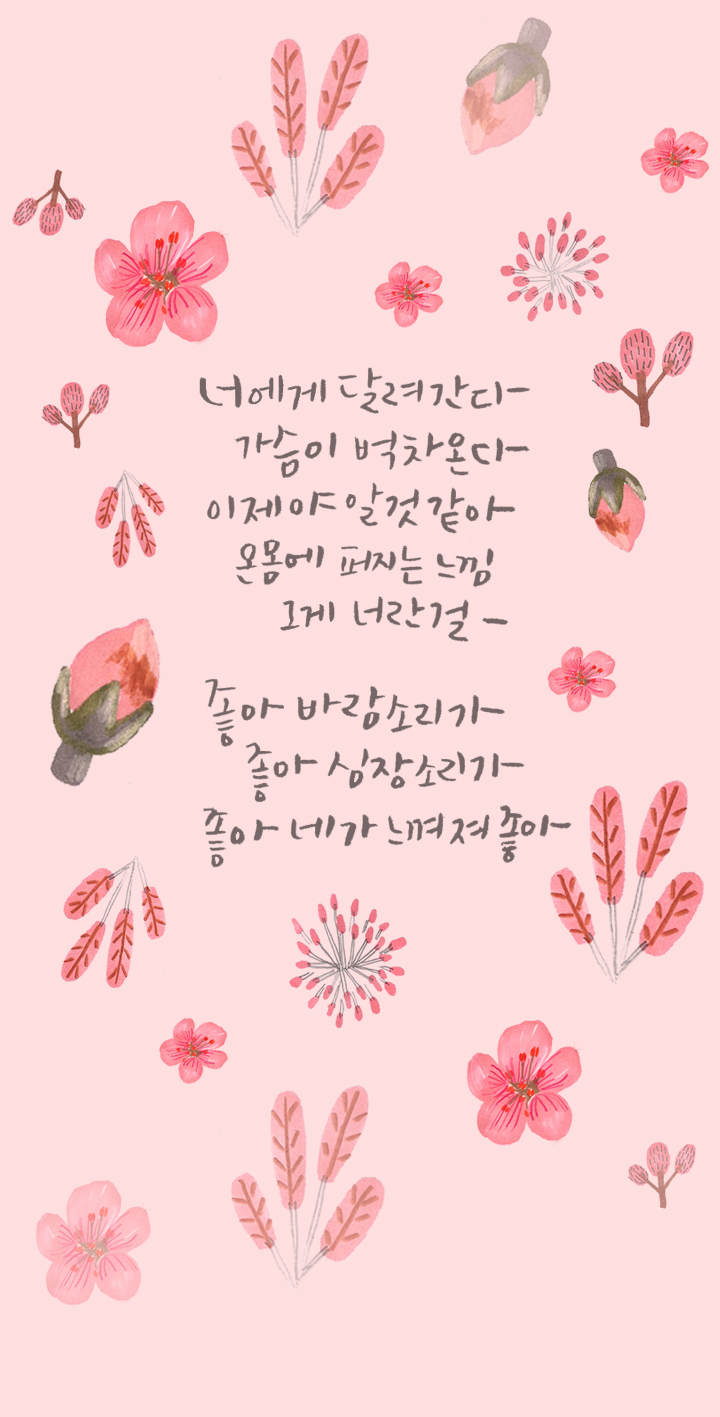 너에게 달려간다
가슴이 벅차온다
이제야 알것 같아
온몸에 퍼지는 느낌
그게 너란걸 -
좋아 바람소리가
좋아 심장소리가
좋아 네가 느껴져 좋아